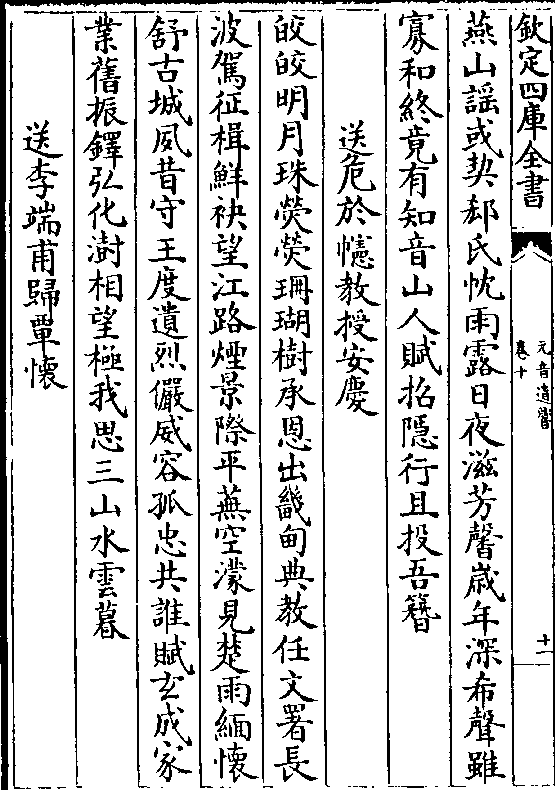 欽定四庫全書
元音遺響
卷十
十一
燕山謡或契郄氏忱雨露日夜滋芳馨歳年深希聲雖
寡和終竟有知音山人賦招隱行且投吾簪
送危於幰教授安慶
皎皎明月珠熒熒珊瑚樹承恩出畿甸典教任文署長
波駕征楫鮮袂望江路煙景際平蕪空濛見楚雨緬懷
舒古城夙昔守王度遺烈儼威容孤忠共誰賦玄成家
業舊振鐸弘化澍相望極我思三山水雲暮
送李端甫歸覃懷